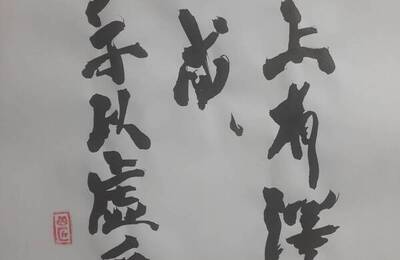 上有澤
咸、
子以虛